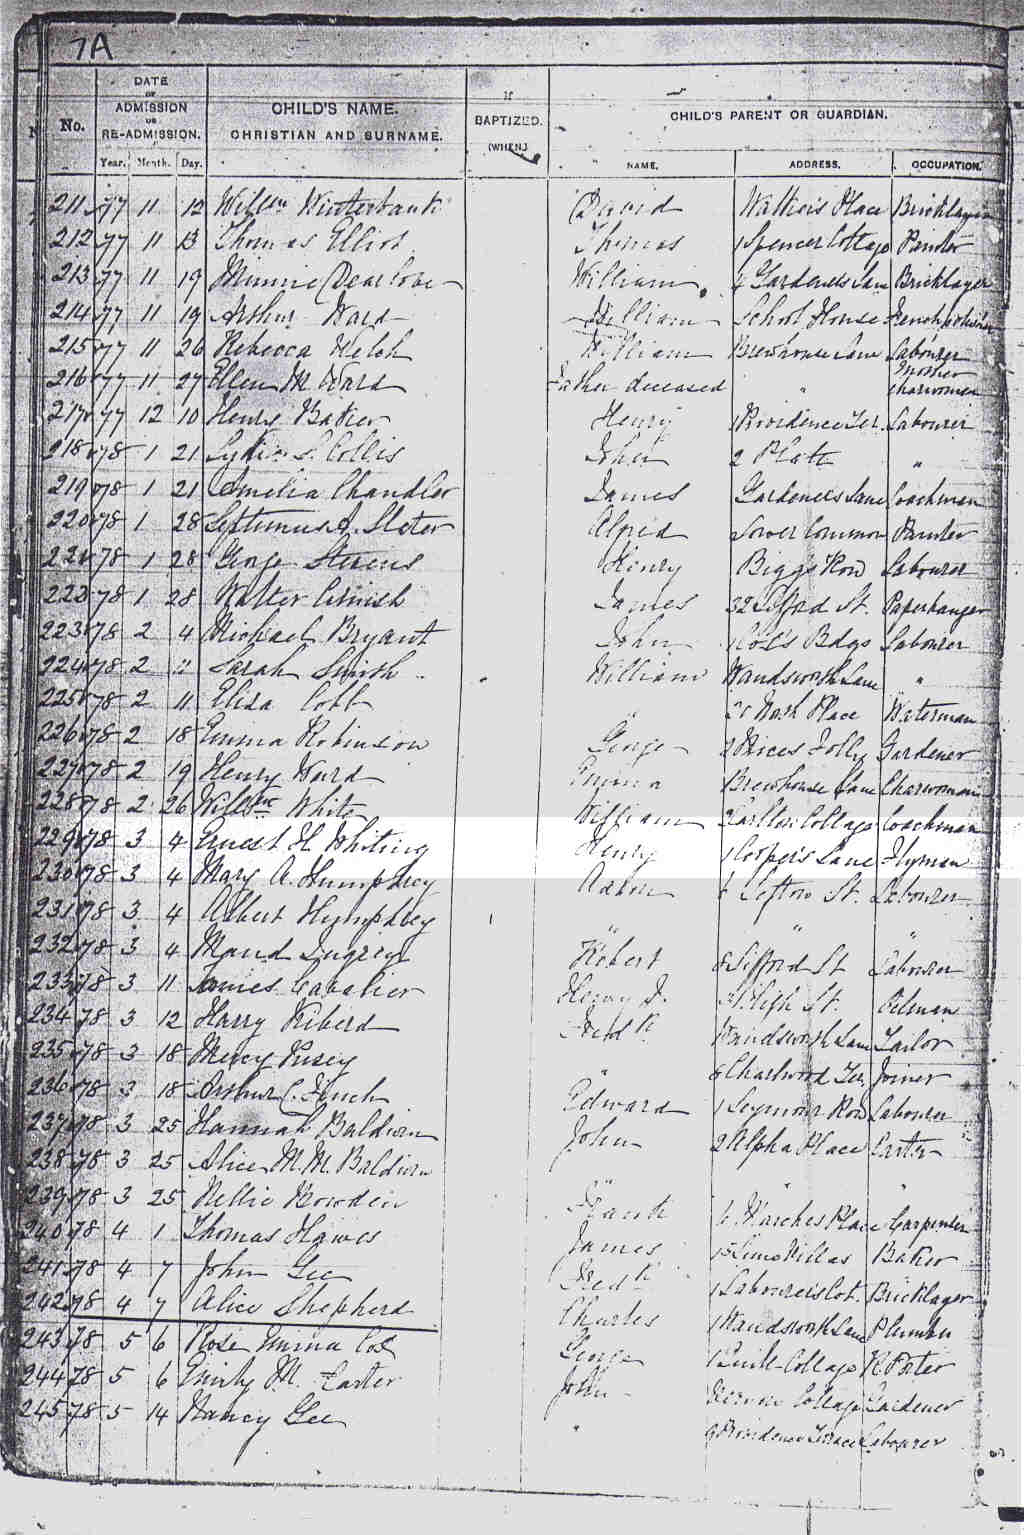 7A
No.
DATE OF ADMISSION OR RE-ADMISSION.
Year. Month. Day.
CHILD'S NAME.
CHRISTIAN AND SURNAME.
If BAPTIZED.
(WHEN.)
CHILD'S PARENT OR GUARDIAN.
NAME. ADDRESS. OCCUPATION.
211 77 11 12 Willm Winterbank David Place Bricklayer
212 77 11 13 Thomas Elliot Thomas 1 Spencer Cottage Painter
213 77 11 19 Minnie Dearlove William 4 Gardeners Lane Bricklayer
214 77 11 19 Arthur Ward William School House French polisher
215 77 11 26 Rebecca Welch William Brewhouse Lane Labourer
216 77 11 27 Ellen M Ward Father deceased " Mother charwoman
217 77 12 10 Henry Baker Henry 1 Providence Ter. Labourer
218 78 1 21 S. Collis John 2 Platt "
219 78 1 21 Amelia Chandler James Gardeners Lane Coachman
220 78 1 28 Septimus A. Slater Alfred Lower Common Painter
221 78 1 28 George Stevens Henry Biggs Row Labourer
222 78 1 28 Walter Cornish James 32 St. Paperhanger
223 78 2 4 Michael Bryant John 1 Bdgs Labourer
224 78 2 11 Sarah Smith William Wandsworth Lane "
225 78 2 11 Eliza Cobb " Nash Place Waterman
226 78 2 18 Emma Robinson George 2 Folly Gardener
227 78 2 19 Henry Ward Emma Brewhouse Lane Charwoman
228 78 2 26 Willm White William Carlton Cottage Coachman
229 78 3 4 Ernest H Whiting Henry 1 Cooper's Lane Flyman
230 78 3 4 Mary A. Humphrey Aaron 6 Sefton St. Labourer
231 78 3 4 Albert Humphrey " " "
232 78 3 4 Maud Robert 8 Gifford St Labourer
233 78 3 11 James Cavalier Henry J. High St. Oilman
234 78 3 12 Harry Kiberd Fredk Wandsworth Lane Tailor
235 78 3 18 Mercy Pusey " 8 Charlwood Ter. Joiner
236 78 3 18 Arthur C. Finch Edward 1 Seymour Row Labourer
237 78 3 25 Hannah Baldwin John 2 Alpha Place Carter
238 78 3 25 Alice M. M. Baldwin " " "
239 78 3 25 Nellie Bowden Frank 6 Place Carpenter
240 78 4 1 Thomas Hawes James 15 Lime Villas Baker
241 78 4 7 John Gee Fredk 1 Labourers Cot. Bricklayer
242 78 4 7 Alice Shepherd Charles 1 Wandsworth Lane Plumber
243 78 5 6 Rose Emma Cox George 1 Cottage R. Porter
244 78 5 6 Emily M. Carter John Cottage Gardener
245 78 5 14 Nancy Gee " 9 Providence Terrace Labourer